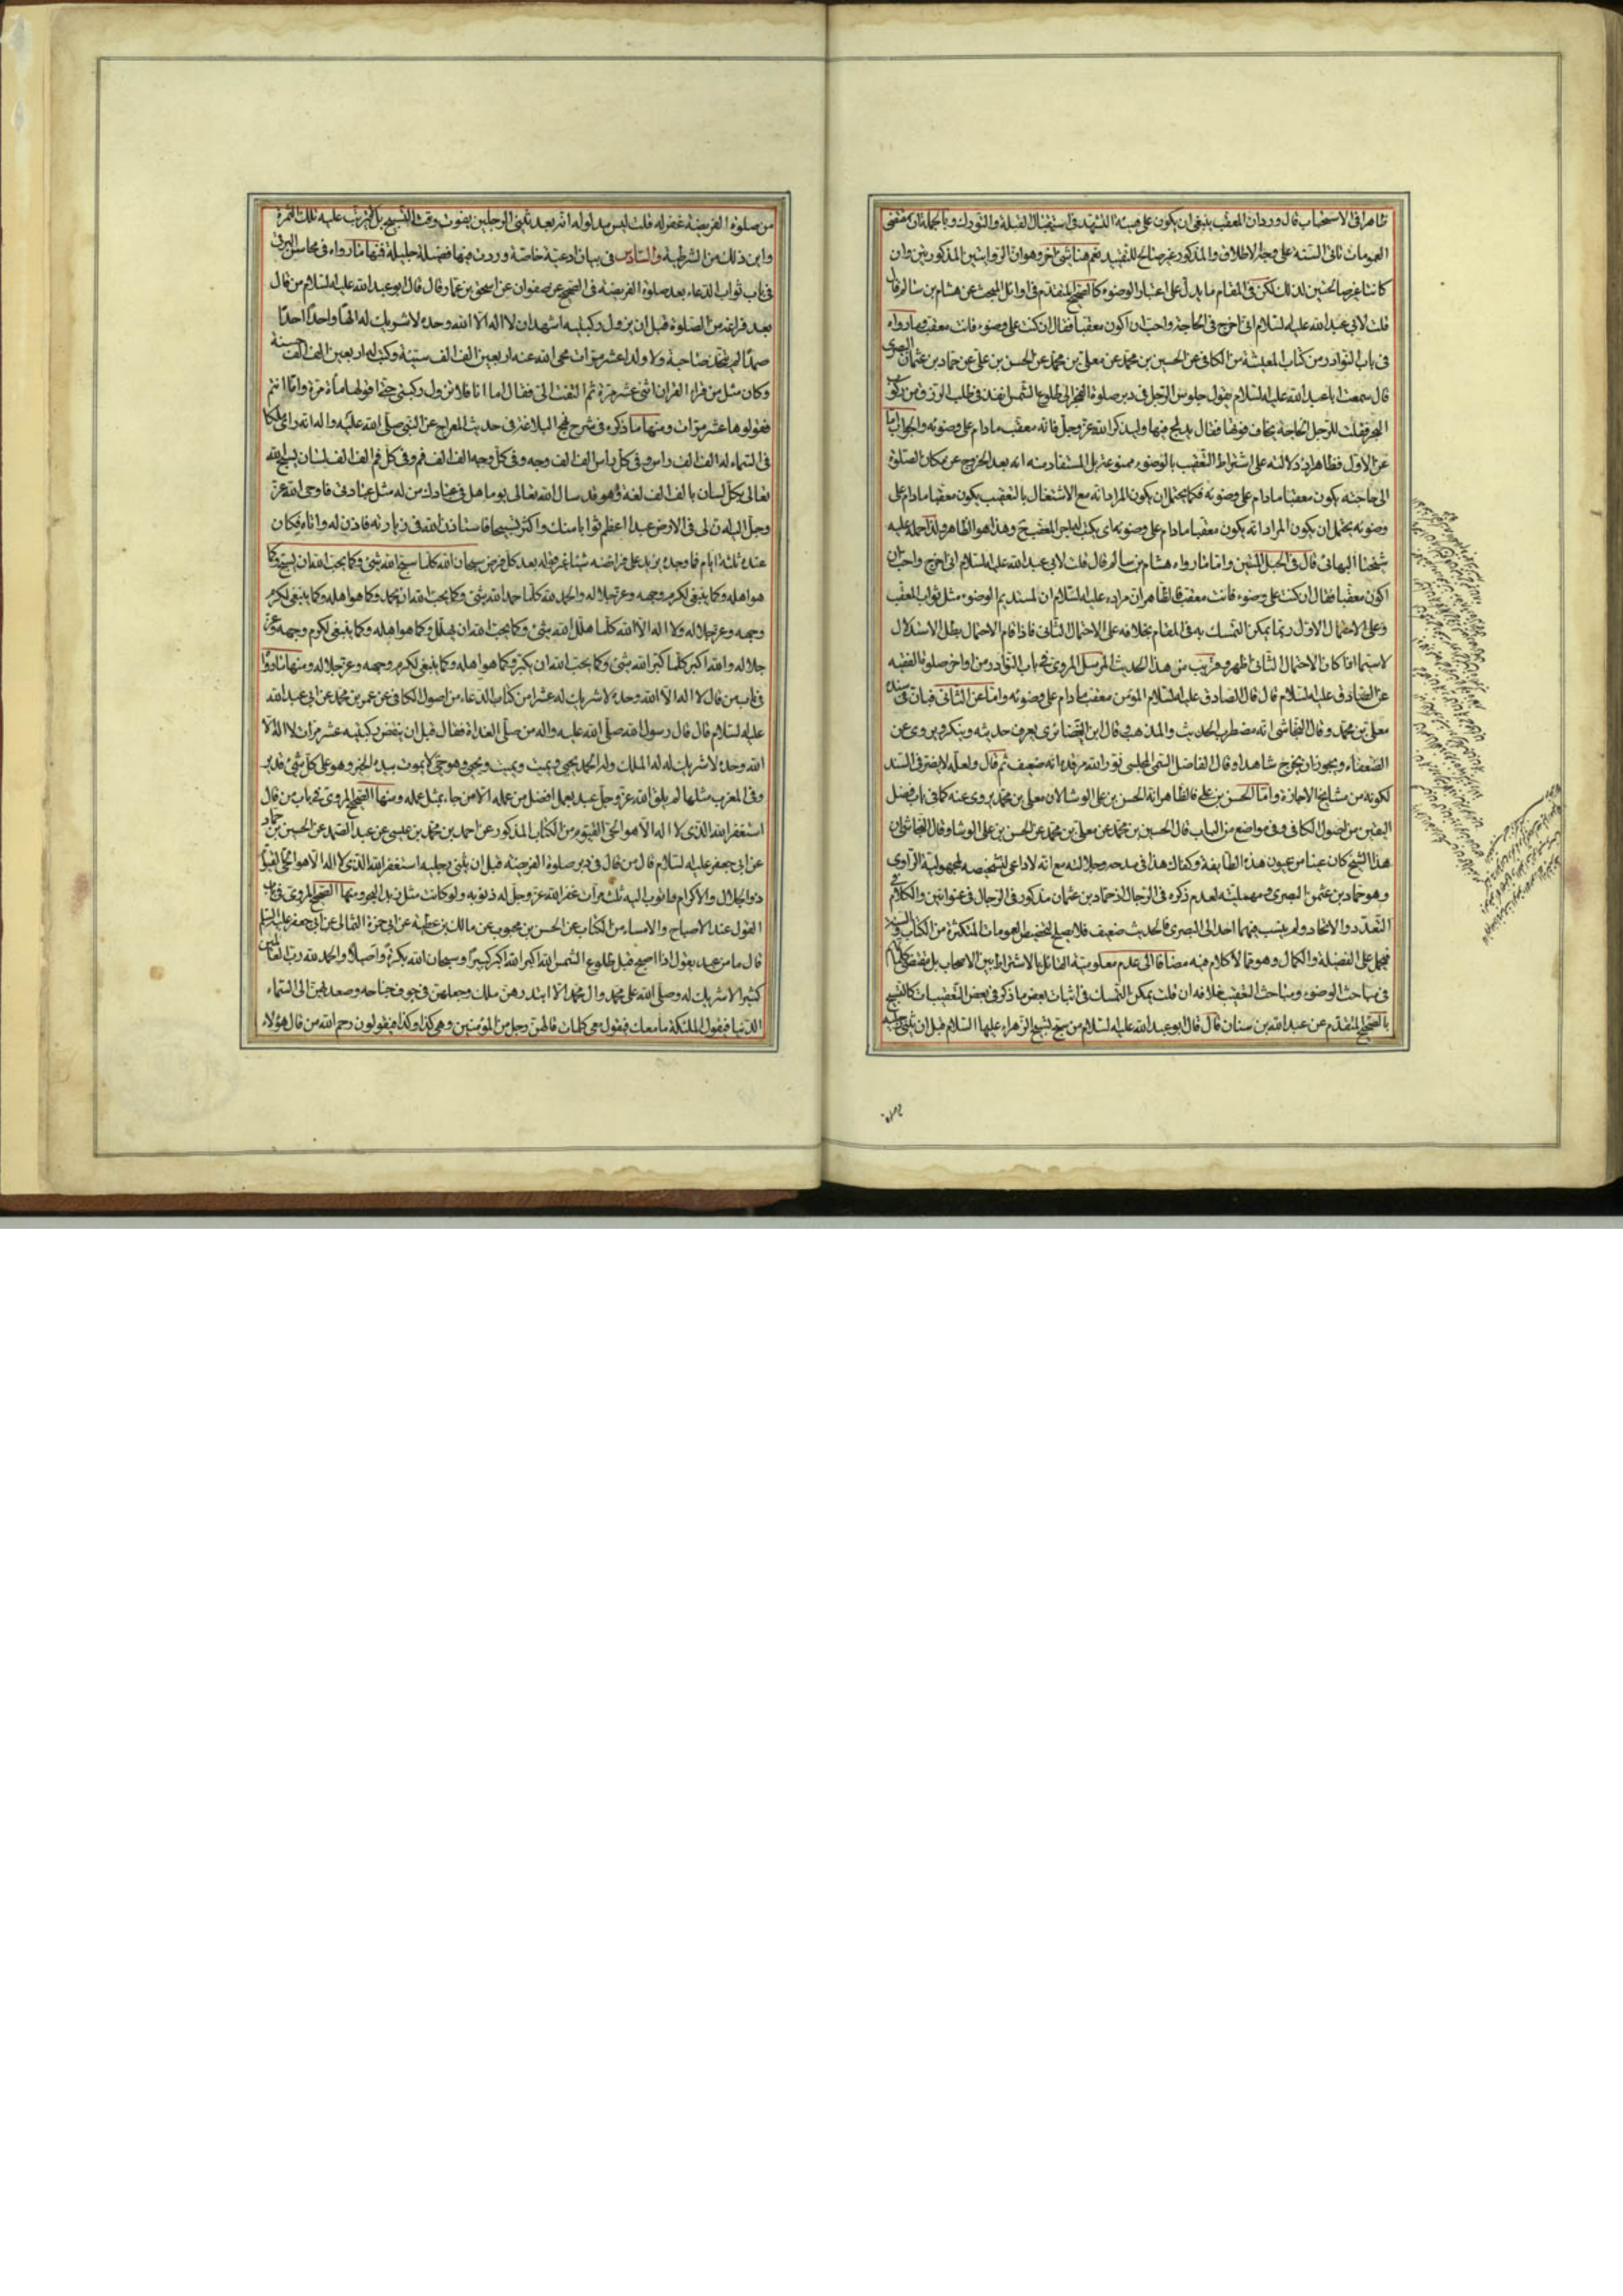 ظاهرا في الاستحباب قال وردان المعقب ينبغي ان يكون على هيئة التشهد في استقبال القبلة والتورك وبالجملة ان مقتضى
العمومات تاتى السنة على وجه الاطلاق والمذكور غير صالح للتقييد نعم هنا شئ اخر وهو ان الروايتين المذكورتين وان
كانتا غير صالحتين لذلك لكن في المقام ما يدل على اعتبار الوضوء كالصحيح المتقدم في اوائل المبحث عن هشام بن سالم قال
قلت لابي عبد الله عليه السلام اني اخرج في الحاجة واحب ان اكون معقبا فقال ان كنت على وضوء فانت معقب وما رواه
في باب النوادر من كتاب المعيشة من الكافي عن الحسين بن محمد عن معلى بن محمد عن الحسن بن علي عن حماد بن عثمان البصرى
قال سمعت ابا عبد الله عليه السلام يقول جلوس الرجل في دبر صلوة الفجر الى طلوع الشمس انفذ في طلب الرزق من ركوب
البحر فقلت للرجل الحاجة يخاف فوتها فقال يدلج فيها وليذكر الله عز وجل فانه معقب ما دام على وضوئه والجواب اما
عن الاول فظاهر اذ دلالته على اشتراط التعقيب بالوضوء ممنوعة بل المستفاد منه انه بعد الخروج عن مكان الصلوة
الى حاجته يكون معقبا ما دام على وضوئه فكما يحتمل ان يكون المراد انه مع الاشتغال بالتعقيب يكون معقبا ما دام على
وضوئه يحتمل ان يكون المراد انه يكون معقبا ما دام على وضوئه اى يكتب له اجر المعقب وهذا هو الظاهر ولذا حمله عليه
شيخنا البهائى قال في الحبل المتين واما ما رواه هشام بن سالم قال قلت لابي عبد الله عليه السلام اني اخرج واحب ان
اكون معقبا فقال ان كنت على وضوء فانت معقب فالظاهر ان مراده عليه السلام ان لمستديم الوضوء مثل ثواب المعقب
وعلى الاحتمال الاول ربما يمكن التمسك به في المقام بخلافه على الاحتمال الثاني فاذا قام الاحتمال بطل الاستدلال
لاسيما اذا كان الاحتمال الثاني اظهر وقريب من هذا الحديث المرسل المروى في باب النوادر من اواخر صلوة الفقيه
عن الصادق عليه السلام قال قال الصادق عليه السلام المؤمن معقب ما دام على وضوئه واما عن الثاني فبان في سنده
معلى بن محمد وقال النجاشى انه مضطرب الحديث والمذهب وقال ابن الغضائرى يعرف حديثه وينكر ويروى عن
الضعفاء ويجوز ان يخرج شاهدا وقال الفاضل التقى المجلسى نور الله مرقده انه ضعيف ثم قال ولعله لا يضر في السند
لكونه من مشايخ الاجازة واما الحسن بن على فالظاهر انه الحسن بن على الوشا لان معلى بن محمد يروى عنه كما في باب فضل
اليقين من اصول الكافى وفي مواضع من الباب قال الحسين بن محمد عن معلى بن محمد عن الحسن بن على الوشا وقال النجاشى ان
هذا الشيخ كان عينا من عيون هذه الطائفة وكفاك هذا في مدحه وجلالته مع انه لا داعى لتشخيصه لمجهولية الراوى
وهو حماد بن عثمن البصرى ومهمليته لعدم ذكره في الرجال اذ حماد بن عثمان مذكور في الرجال في عنوانين والكلام في
التعدد والاتحاد ولم ينسب فيهما احد الى البصرى فالحديث ضعيف فلا يصلح لتخصيص العمومات المتكثرة من الكتاب والسنة
فيحمل على الفضيلة والكمال وهو مما لا كلام فيه مضافا الى عدم معلومية القائل بالاشتراط بين الاصحاب بل مقتضى كلماتهم
في مباحث الوضوء ومباحث التعقيب خلافه ان قلت يمكن التمسك في اثبات بعض ما ذكر في بعض التعقيبات كالتسبيح
بالصحيح المتقدم عن عبد الله بن سنان قال قال ابو عبد الله عليه السلام من سبح تسبيح الزهراء عليها السلام قبل ان يثنى رجليه
من صلوة الفريضة غفر له قلت ليس مدلوله انه بعد ثنى الرجلين يفوت وقت التسبيح بل لم يترتب عليه تلك الثمرة
واين ذلك من الشرطية والسادس في بيان ادعية خاصة وردت فيها فضيلة جليلة فمنها ما رواه في محاسن البرقى
في باب ثواب الدعاء بعد صلوة الفريضة في الصحيح عن صفوان عن اسحق بن عمار قال قال ابو عبد الله عليه السلام من قال
بعد فراغه من الصلوة قبل ان يزول ركبتيه اشهد ان لا اله الا الله وحده لا شريك له الها واحدا احدا
صمدا لم يتخذ صاحبة ولا ولدا عشر مرات محى الله عنه اربعين الف الف سيئة وكتب له اربعين الف الف حسنة
وكان مثل من قراء القران اثنى عشر مرة ثم التفت الى فقال اما انا فلا تزول ركبتى حتى اقولها مأة مرة واما انتم
فقولوها عشر مرات ومنها ما ذكره في شرح نهج البلاغة في حديث المعراج عن النبى صلى الله عليه واله انه راى ملكا
في السماء له الف الف راس وفي كل راس الف الف وجه وفي كل وجه الف الف فم وفي كل فم الف الف لسان يسبح الله
تعالى بكل لسان بالف الف لغة وهو قد سال الله تعالى يوما هل في عبادك من له مثل عبادتى فاوحى الله عز
وجل اليه ان لى في الارض عبدا اعظم ثوابا منك واكثر تسبيحا فاستاذن الله في زيارته فاذن له واتاه فكان
عنده ثلثة ايام فما وجده يزيد على فرائضه شيئا غير قوله بعد كل فرض سبحان الله كلما سبح الله شئ وكما يحب الله ان يسبح وكما
هو اهله وكما ينبغى لكرم وجهه وعز جلاله والحمد لله كلما حمد الله شئ وكما يحب الله ان يحمد وكما هو اهله وكما ينبغى لكرم
وجهه وعز جلاله ولا اله الا الله كلما هلل الله شئ وكما يحب الله ان يهلل وكما هو اهله وكما ينبغى لكرم وجهه وعز
جلاله والله اكبر كلما كبر الله شئ وكما يحب الله ان يكبر وكما هو اهله وكما ينبغى لكرم وجهه وعز جلاله ومنها ما رواه
في باب من قال لا اله الا الله وحده لا شريك له عشرا من كتاب الدعاء من اصول الكافى عن عمر بن محمد عن ابى عبد الله
عليه السلام قال قال رسول الله صلى الله عليه واله من صلى الغداة فقال قبل ان ينقض ركبتيه عشر مرات لا اله الا
الله وحده لا شريك له له الملك وله الحمد يحيى ويميت ويميت ويحيى وهو حى لا يموت بيده الخير وهو على كل شئ قدير
وفي المغرب مثلها لم يلق الله عز وجل عبد بعمل افضل من عمله الا من جاء بمثل عمله ومنها الصحيح المروى في باب من قال
استغفر الله الذى لا اله الا هو الحى القيوم من الكتاب المذكور عن احمد بن محمد بن عيسى عن عبد الصمد عن الحسين بن حماد
عن ابى جعفر عليه السلام قال من قال في دبر صلوة الفريضة قبل ان يثنى رجليه استغفر الله الذى لا اله الا هو الحى القيوم
ذو الجلال والاكرام واتوب اليه ثلث مرات غفر الله عز وجل له ذنوبه ولو كانت مثل زبد البحر ومنها الصحيح المروى في باب
القول عند الاصباح والامساء من الكتاب عن الحسن بن محبوب عن مالك بن عطية عن ابى حمزة الثمالى عن ابى جعفر عليه السلم
قال ما من عبد يقول اذا اصبح قبل طلوع الشمس الله اكبر الله اكبر كبيرا وسبحان الله بكرة واصيلا والحمد لله رب العالمين
كثيرا لا شريك له وصلى الله على محمد وال محمد الا ابتدرهن ملك وجعلهن في جوف جناحه وصعد بهن الى السماء
الدنيا فيقول الملئكة ما معك فيقول معى كلمات قالهن رجل من المؤمنين وهى كذا وكذا فيقولون رحم الله من قال هؤلاء